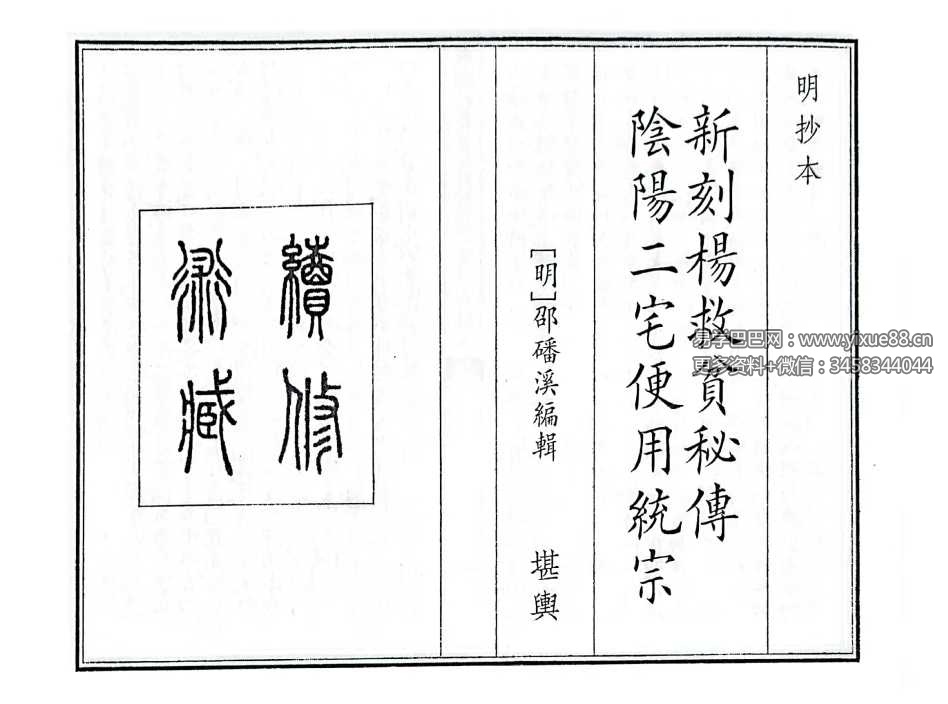 明抄本
新刻楊救貧秘傳
陰陽二宅便用統宗
[明]邵磻溪編輯
堪輿
續修
術藏
易学巴巴网：www.yixue88.cn
更多资料+微信：3458344044